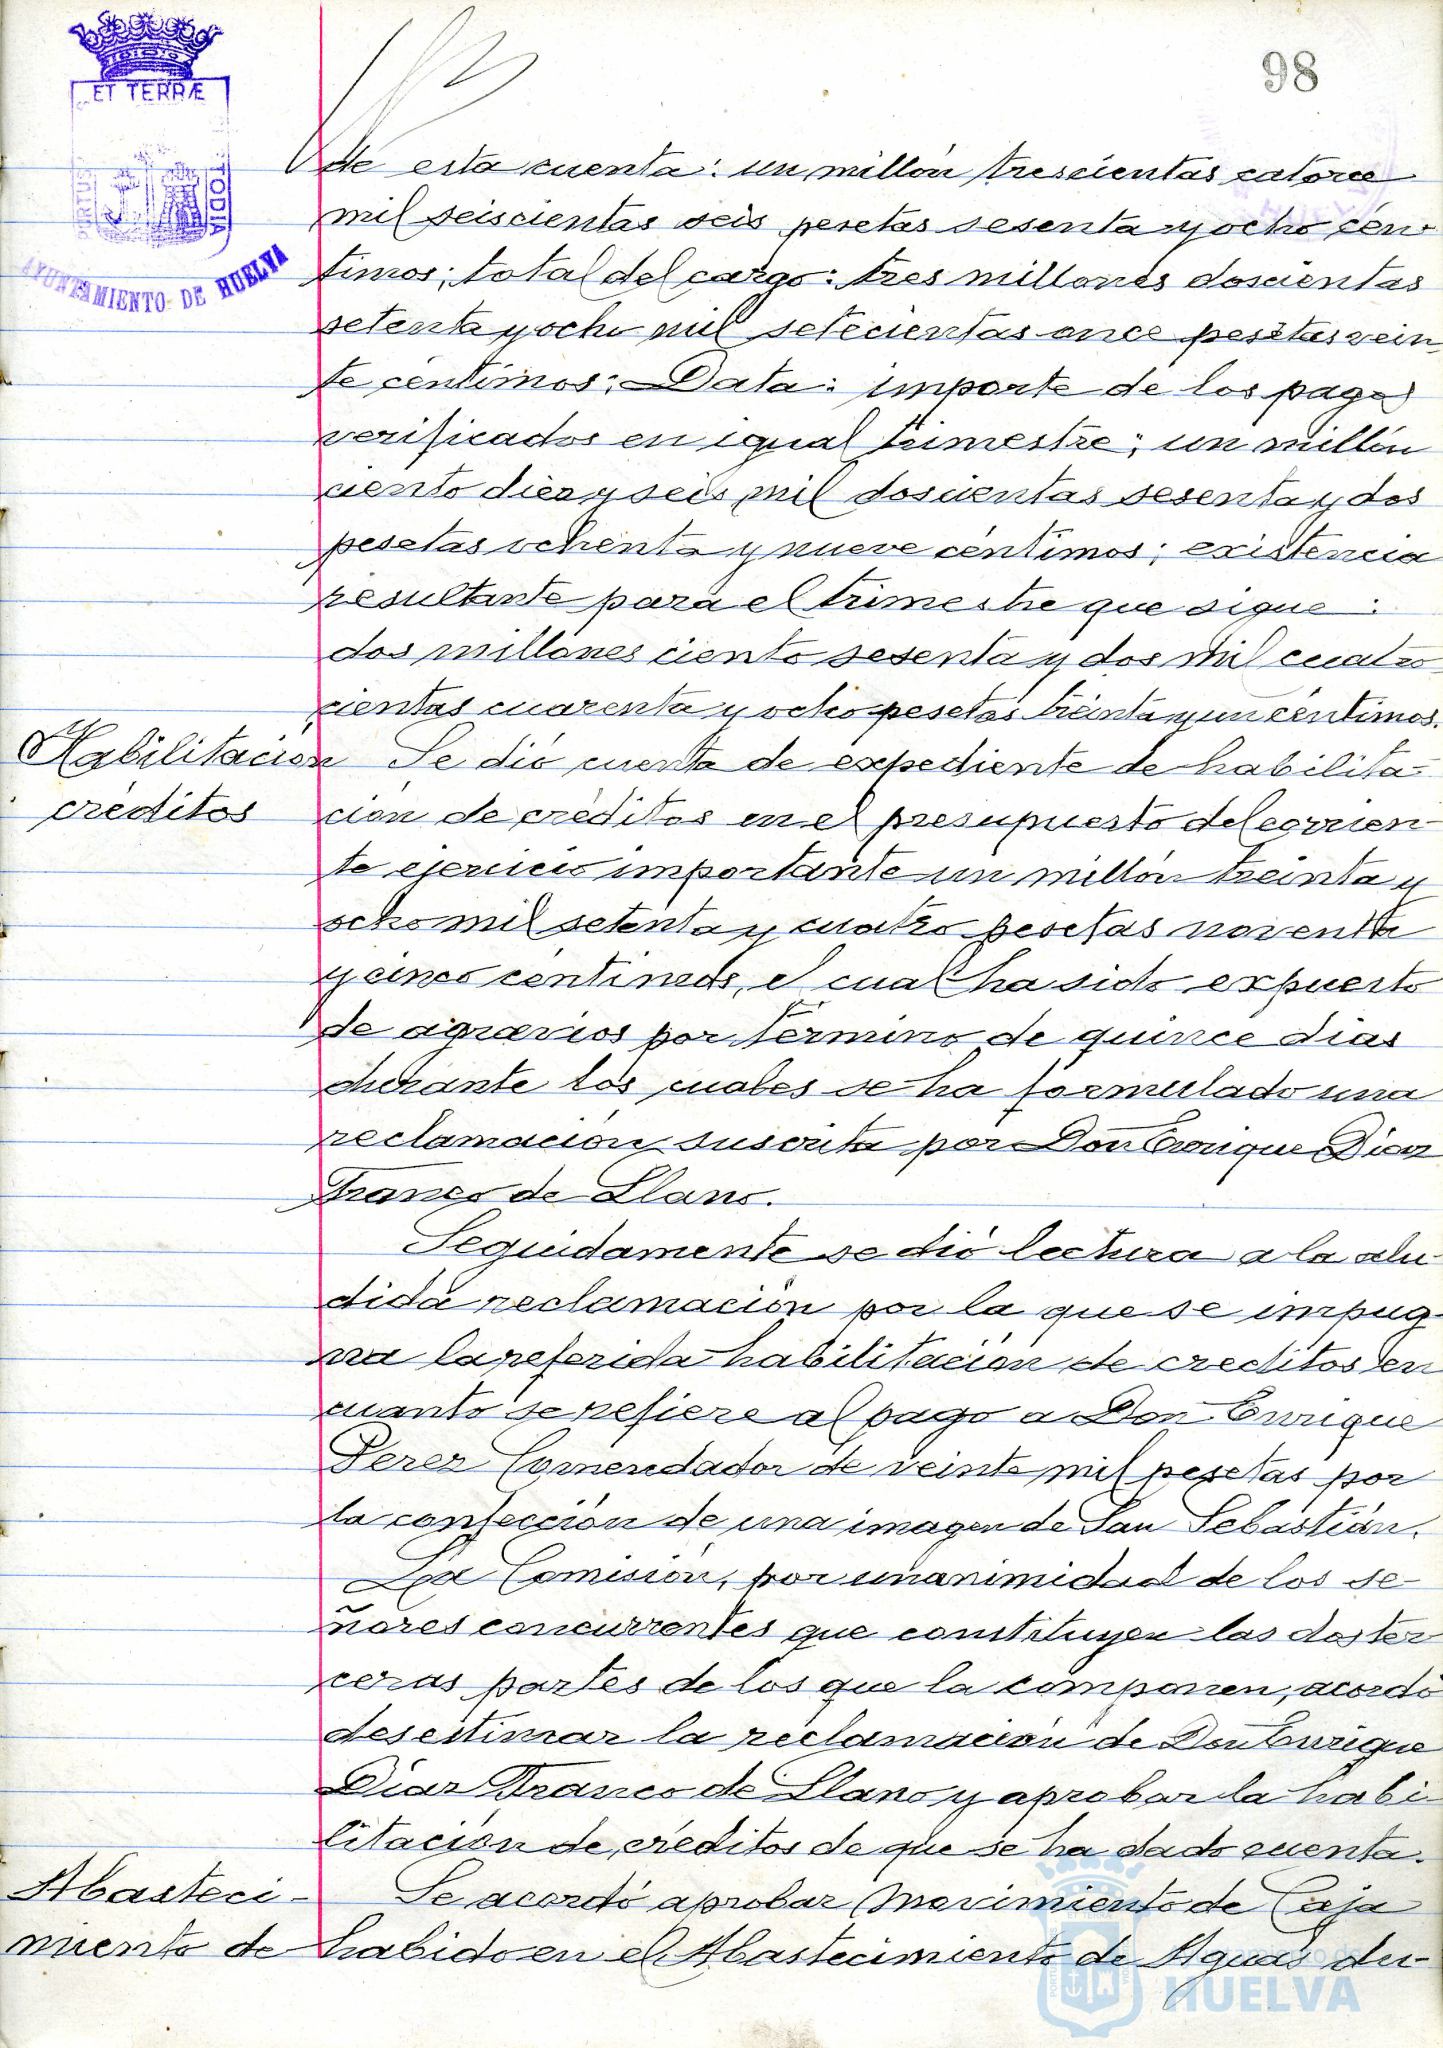 98
ET TERRÆ
PORTUS
TODIA
AYUNTAMIENTO DE HUELVA
de esta cuenta: un millón trescientas catorce
mil seiscientas seis pesetas sesenta y ocho cén-
timos; total del cargo: tres millones doscientas
setenta y ocho mil setecientas once pesetas vein-
te céntimos; Data: importe de los pagos
verificados en igual trimestre; un millón
ciento diez y seis mil doscientas sesenta y dos
pesetas ochenta y nueve céntimos; existencia
resultante para el trimestre que sigue:
dos millones ciento sesenta y dos mil cuatro
cientas cuarenta y ocho pesetas treinta y un céntimos.
Habilitación
créditos
Se dió cuenta de expediente de habilita-
ción de créditos en el presupuesto del corrien-
te ejercicio importante un millón treinta y
ocho mil setenta y cuatro pesetas noventa
y cinco céntimos, el cual ha sido expuesto
de agravios por término de quince días
durante los cuales se ha formulado una
reclamación suscrita por Don Enrique Díaz
Franco de Llano.
Seguidamente se dió lectura a la alu-
dida reclamación por la que se impug-
na la referida habilitación de créditos en
cuanto se refiere al pago a Don Enrique
Perez Comendador de veinte mil pesetas por
la confección de una imagen de San Sebastián.
La Comisión, por unanimidad de los se-
ñores concurrentes que constituyen las dos ter
ceras partes de los que la componen, acordó
desestimar la reclamación de Don Enrique
Díaz Franco de Llano y aprobar la habi-
litación de créditos de que se ha dado cuenta.
Abasteci-
miento de
Se acordó aprobar Movimiento de Caja
habido en el Abastecimiento de Aguas du-
Ayuntamiento de
HUELVA